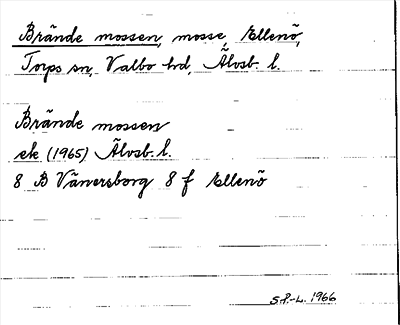 Brände mossen, mosse, Ellenö,
Torps sn, Valbo hd, Älvsb. l.
Brände mossen
ek (1965) Älvsb. l.
8 B Vänersborg 8 f Ellenö
S.P.-L. 1966